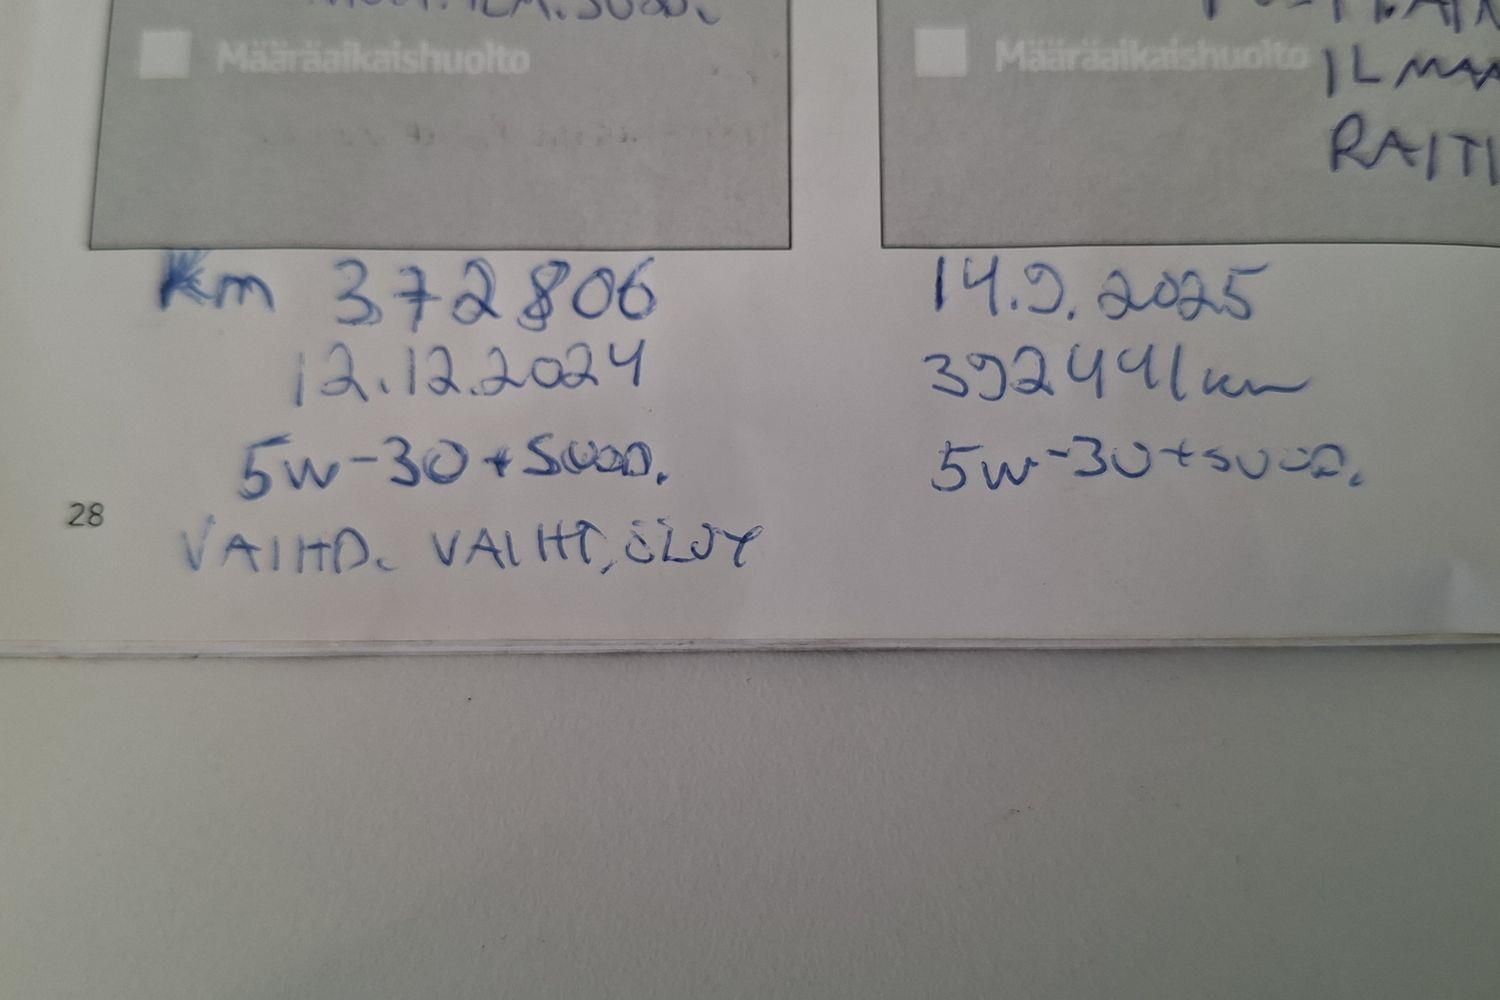 Määräaikaishuolto
Km 372806
12.12.2024
5W-30 + SUOD.
VAIHD. VAIHT, ÖLJY
28
Määräaikaishuolto
ILMAN
RAITI
14.9.2025
392441km
5W-30+SUOD.